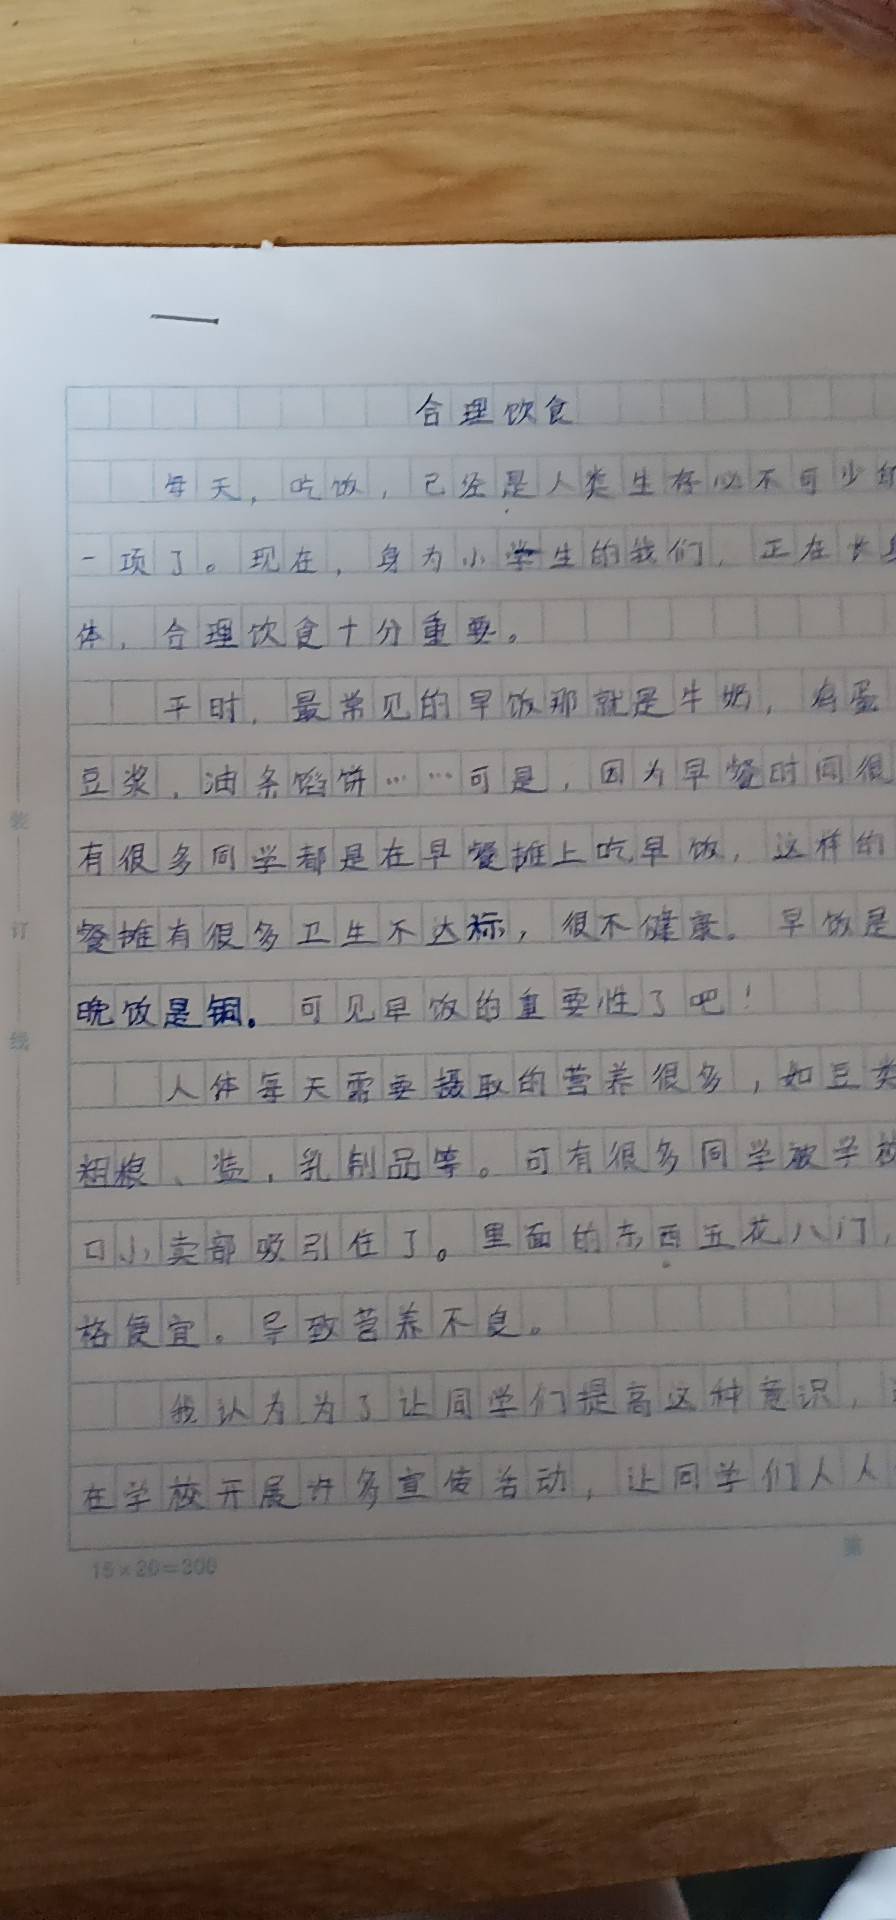 合理饮食
每天，吃饭，已经是人类生存必不可少
一项了。现在，身为小学生的我们，正在长
体，合理饮食十分重要。
平时，最常见的早饭那就是牛奶，鸡蛋
豆浆，油条馅饼……可是，因为早餐时间很
有很多同学都是在早餐摊上吃早饭，这样的
餐摊有很多卫生不达标，很不健康。早饭是
晚饭是铜。可见早饭的重要性了吧！
人体每天需要摄取的营养很多，如豆类
粗粮、盐，乳制品等。可有很多同学被学校
口小卖部吸引住了。里面的东西五花八门，
格便宜。导致营养不良。
我认为为了让同学们提高这种意识，
在学校开展许多宣传活动，让同学们人人
装
订
线
15×20=300
第